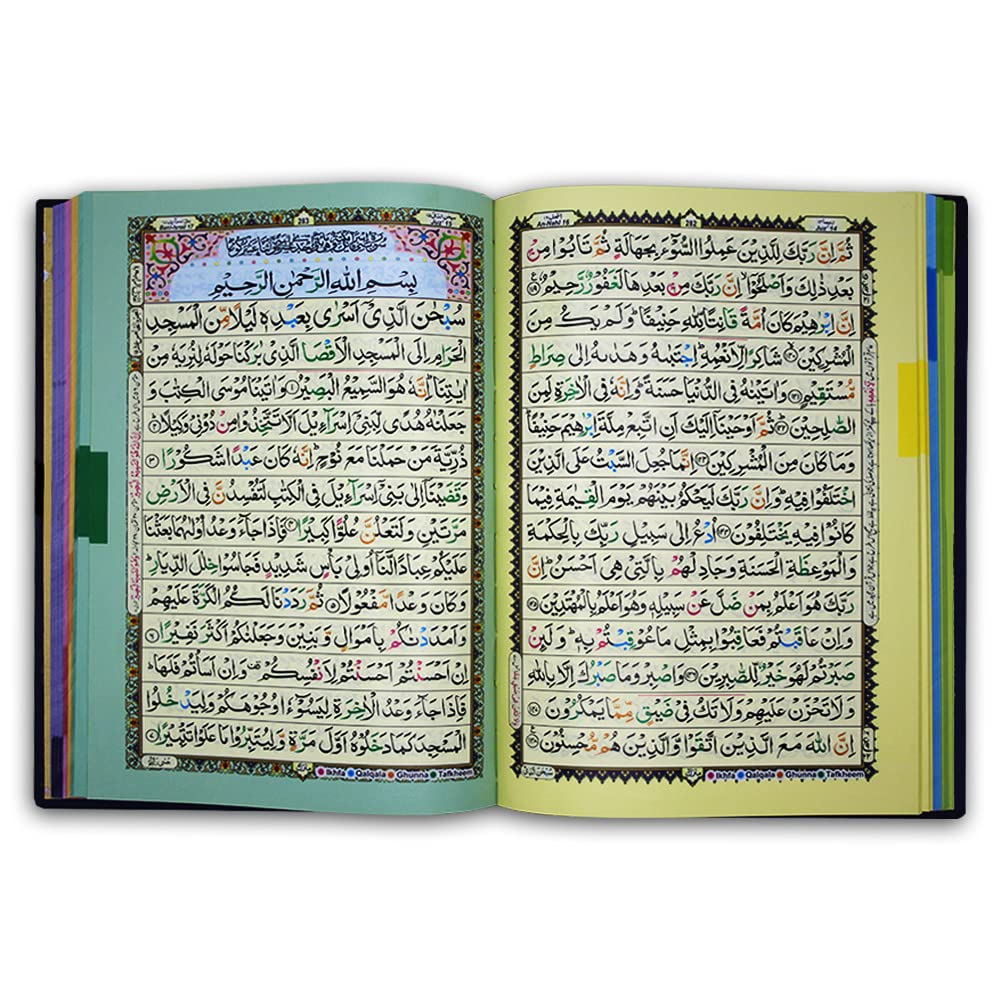 An-Nahl 16 282 Juz 14
ثُمَّ اِنَّ رَبَّكَ لِلَّذِیْنَ عَمِلُوا السُّوْٓءَ بِجَهَالَةٍ ثُمَّ تَابُوْا مِنْۢ
بَعْدِ ذٰلِكَ وَاَصْلَحُوْۤا اِنَّ رَبَّكَ مِنْۢ بَعْدِهَا لَغَفُوْرٌ رَّحِیْمٌ ۱۱۹
اِنَّ اِبْرٰهِیْمَ كَانَ اُمَّةً قَانِتًا لِّلّٰهِ حَنِیْفًا ؕ وَلَمْ یَكُ مِنَ
الْمُشْرِكِیْنَ ۱۲۰ شَاكِرًا لِّاَنْعُمِهٖ ؕ اِجْتَبٰىهُ وَهَدٰىهُ اِلٰى صِرَاطٍ
مُّسْتَقِیْمٍ ۱۲۱ وَاٰتَیْنٰهُ فِی الدُّنْیَا حَسَنَةً ؕ وَاِنَّهٗ فِی الْاٰخِرَةِ لَمِنَ
الصّٰلِحِیْنَ ۱۲۲ ثُمَّ اَوْحَیْنَاۤ اِلَیْكَ اَنِ اتَّبِعْ مِلَّةَ اِبْرٰهِیْمَ حَنِیْفًا ؕ
وَمَا كَانَ مِنَ الْمُشْرِكِیْنَ ۱۲۳ اِنَّمَا جُعِلَ السَّبْتُ عَلَى الَّذِیْنَ
اخْتَلَفُوْا فِیْهِ ؕ وَاِنَّ رَبَّكَ لَیَحْكُمُ بَیْنَهُمْ یَوْمَ الْقِیٰمَةِ فِیْمَا
كَانُوْا فِیْهِ یَخْتَلِفُوْنَ ۱۲۴ اُدْعُ اِلٰى سَبِیْلِ رَبِّكَ بِالْحِكْمَةِ
وَالْمَوْعِظَةِ الْحَسَنَةِ وَجَادِلْهُمْ بِالَّتِیْ هِیَ اَحْسَنُ ؕ اِنَّ
رَبَّكَ هُوَ اَعْلَمُ بِمَنْ ضَلَّ عَنْ سَبِیْلِهٖ وَهُوَ اَعْلَمُ بِالْمُهْتَدِیْنَ ۱۲۵
وَاِنْ عَاقَبْتُمْ فَعَاقِبُوْا بِمِثْلِ مَا عُوْقِبْتُمْ بِهٖ ؕ وَلَئِنْ
صَبَرْتُمْ لَهُوَ خَیْرٌ لِّلصّٰبِرِیْنَ ۱۲۶ وَاصْبِرْ وَمَا صَبْرُكَ اِلَّا بِاللّٰهِ
وَلَا تَحْزَنْ عَلَیْهِمْ وَلَا تَكُ فِیْ ضَیْقٍ مِّمَّا یَمْكُرُوْنَ ۱۲۷
اِنَّ اللّٰهَ مَعَ الَّذِیْنَ اتَّقَوْا وَّالَّذِیْنَ هُمْ مُّحْسِنُوْنَ ۱۲۸
Ikhfa Qalqala Ghunna Tafkheem
283
بِسْمِ اللّٰهِ الرَّحْمٰنِ الرَّحِیْمِ
سُبْحٰنَ الَّذِیْۤ اَسْرٰى بِعَبْدِهٖ لَیْلًا مِّنَ الْمَسْجِدِ
الْحَرَامِ اِلَى الْمَسْجِدِ الْاَقْصَا الَّذِیْ بٰرَكْنَا حَوْلَهٗ لِنُرِیَهٗ مِنْ
اٰیٰتِنَا ؕ اِنَّهٗ هُوَ السَّمِیْعُ الْبَصِیْرُ ۱ وَاٰتَیْنَا مُوْسَى الْكِتٰبَ وَ
جَعَلْنٰهُ هُدًى لِّبَنِیْۤ اِسْرَآءِیْلَ اَلَّا تَتَّخِذُوْا مِنْ دُوْنِیْ وَكِیْلًا ۲
ذُرِّیَّةَ مَنْ حَمَلْنَا مَعَ نُوْحٍ ؕ اِنَّهٗ كَانَ عَبْدًا شَكُوْرًا ۳
وَقَضَیْنَاۤ اِلٰى بَنِیْۤ اِسْرَآءِیْلَ فِی الْكِتٰبِ لَتُفْسِدُنَّ فِی الْاَرْضِ
مَرَّتَیْنِ وَلَتَعْلُنَّ عُلُوًّا كَبِیْرًا ۴ فَاِذَا جَآءَ وَعْدُ اُوْلٰىهُمَا بَعَثْنَا
عَلَیْكُمْ عِبَادًا لَّنَاۤ اُولِیْ بَاْسٍ شَدِیْدٍ فَجَاسُوْا خِلٰلَ الدِّیَارِ ؕ
وَكَانَ وَعْدًا مَّفْعُوْلًا ۵ ثُمَّ رَدَدْنَا لَكُمُ الْكَرَّةَ عَلَیْهِمْ
وَاَمْدَدْنٰكُمْ بِاَمْوَالٍ وَّبَنِیْنَ وَجَعَلْنٰكُمْ اَكْثَرَ نَفِیْرًا ۶
اِنْ اَحْسَنْتُمْ اَحْسَنْتُمْ لِاَنْفُسِكُمْ وَاِنْ اَسَاْتُمْ فَلَهَا ؕ
فَاِذَا جَآءَ وَعْدُ الْاٰخِرَةِ لِیَسُوْٓءٗا وُجُوْهَكُمْ وَلِیَدْخُلُوا
الْمَسْجِدَ كَمَا دَخَلُوْهُ اَوَّلَ مَرَّةٍ وَّلِیُتَبِّرُوْا مَا عَلَوْا تَتْبِیْرًا ۷
Ikhfa Qalqala Ghunna Tafkheem